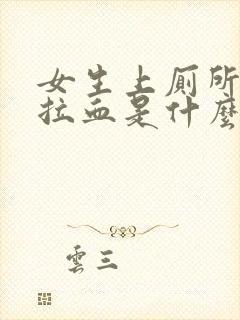 女生上厕所
拉血是什麽
雲三